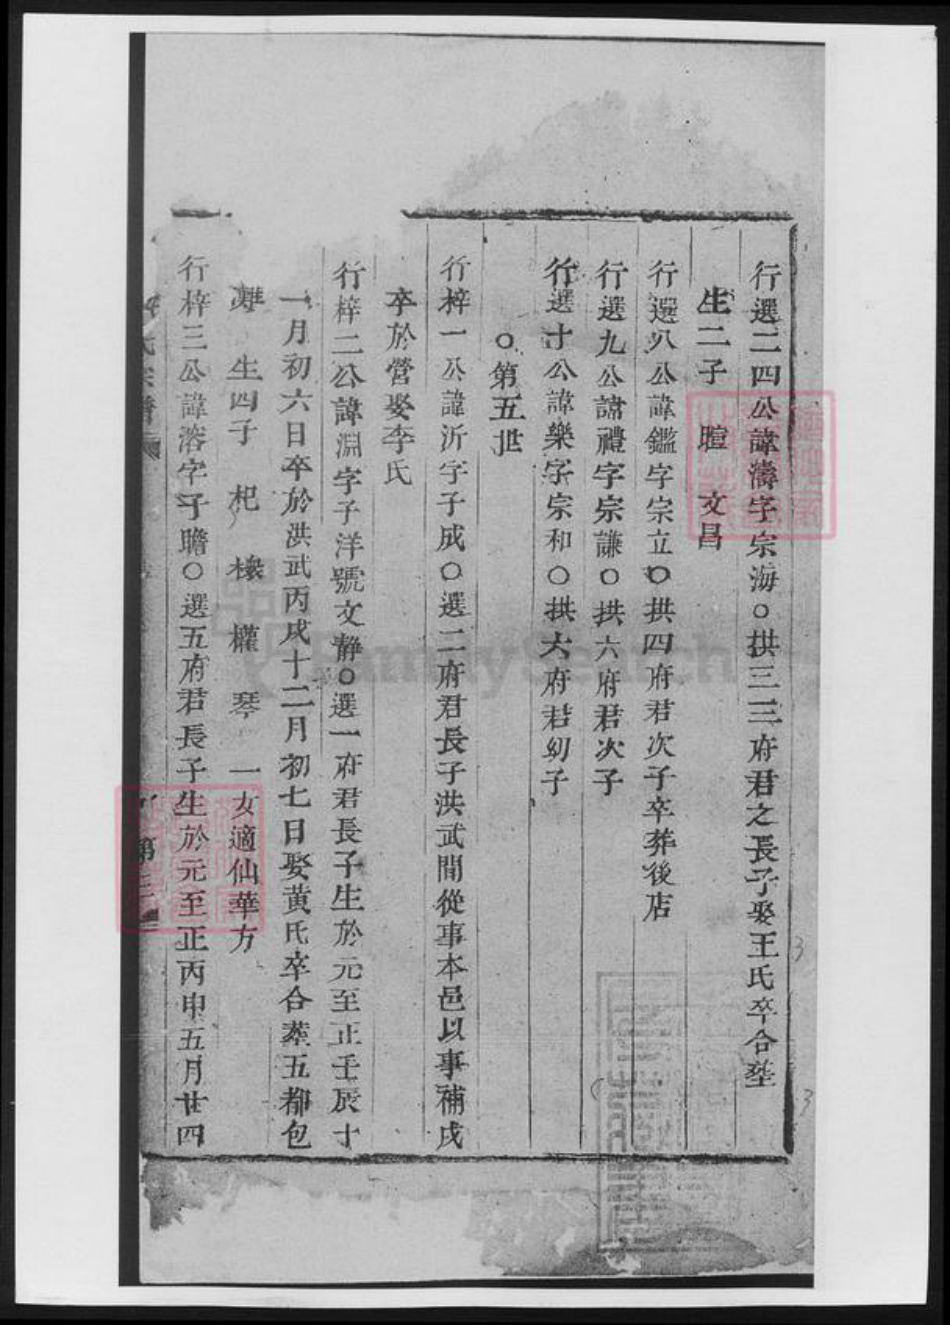 行選二四公諱濤字宗海○拱三三府君之長子娶王氏卒合塟
生二子 暄 文昌
行選八公諱鑑字宗立○拱四府君次子卒葬後店
行選九公諱禮字宗謙○拱六府君次子
行選十公諱樂字宗和○拱六府君幼子
○第五世
行梓一公諱沂字子成○選二府君長子洪武間從事本邑以事補戍
卒於營娶李氏
行梓二公諱淵字子洋號文靜○選一府君長子生於元至正壬辰十
一月初六日卒於洪武丙戌十二月初七日娶黃氏卒合葬五都包
生四子 杞 權 琴 一女適仙華方
行梓三公諱溶字子瞻○選五府君長子生於元至正丙申五月廿四
氏宗譜
第三
FamilySearch